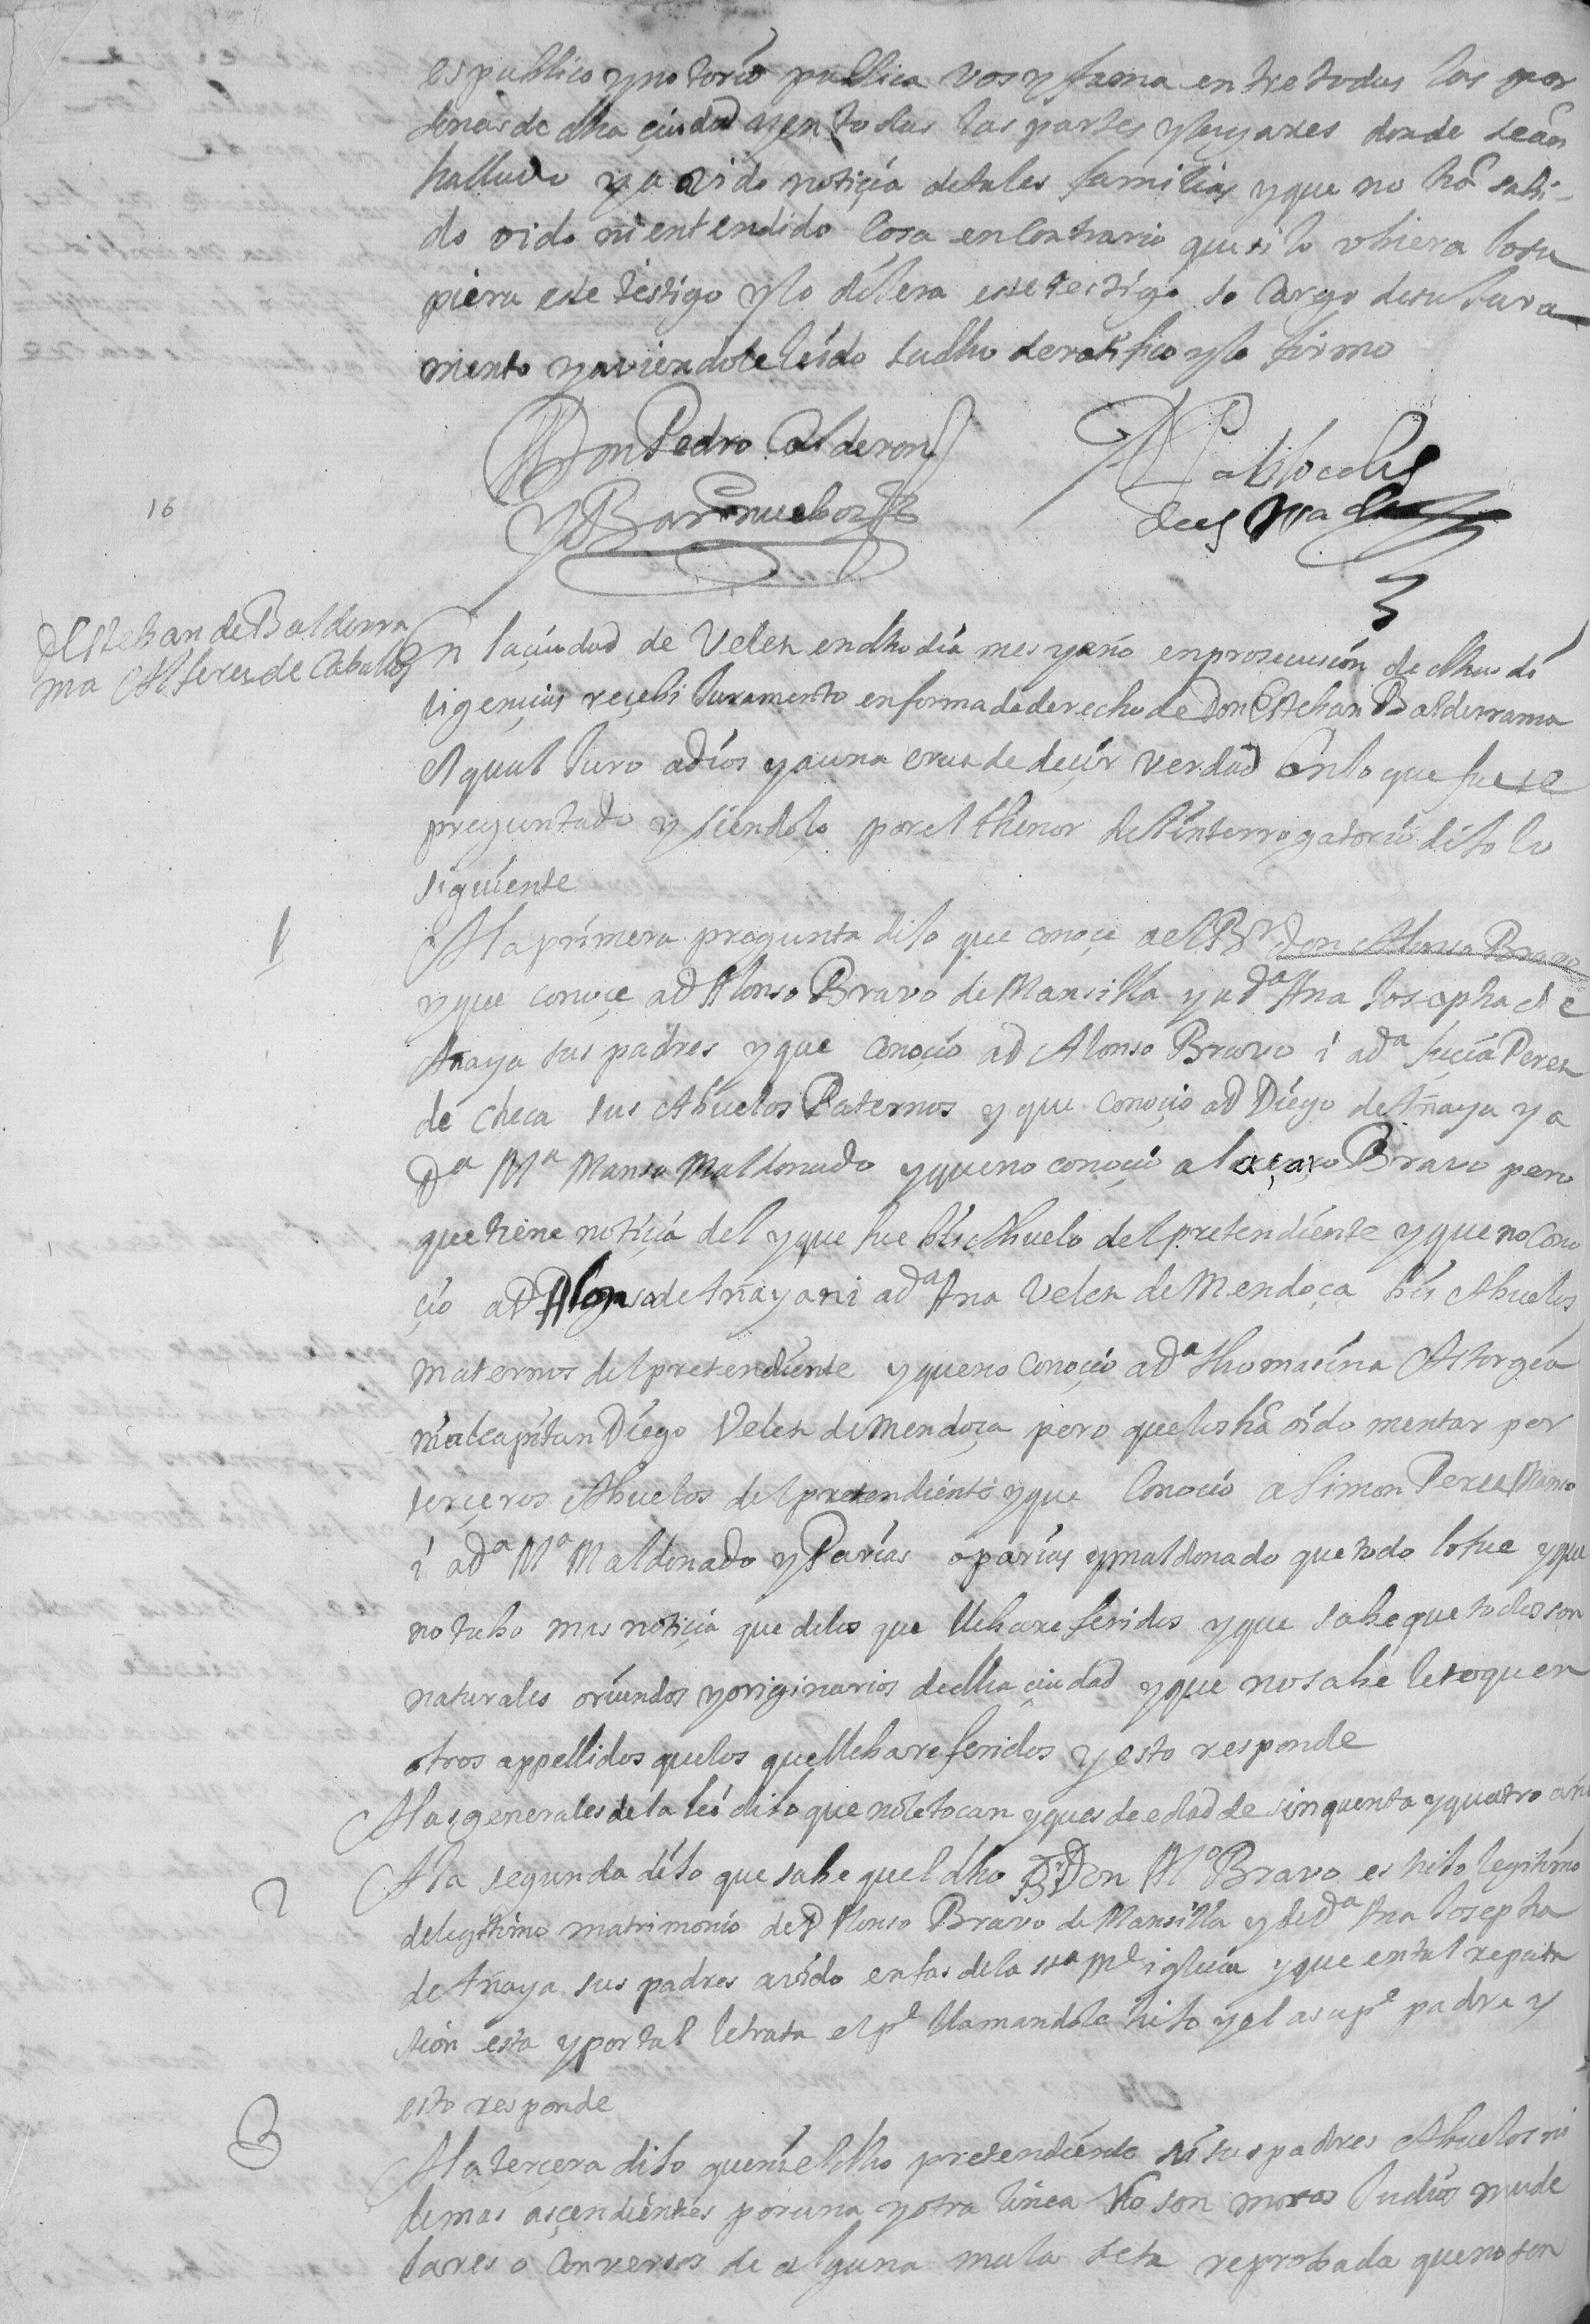 es publico y notorio publica vos y fama entre todas las per
sonas de dha ciudad y en todas las partes y lugares donde sean
hallado y avido notiçia de tales familias y que no hã sabi-
do oido ni entendido cosa en contrario que si lo ubiera lo su
piera este testigo y lo dijera este testigo so cargo de su Jura
mento y aviendole leido su dho se ratifico y lo firmo
Don Pedro Calderon
y Barnuebo
16
D Esteban de Balderra
ma Alferes de Caballos
En la ciudad de Velez en dho dia mes y año en prosecusion de dhas di
ligençias reçebi Juramento en forma de derecho de Don Esteban Balderrama
el qual Juro a Dios y a una cruz de deçir verdad En lo que fuese
preguntado y siendolo por el thenor del interrogatorio dijo lo
siguiente
1
A la primera pregunta dijo que conoçe a el Br don Alonso Bravo
y que conoçe a D Alonso Bravo de Mansilla y a Dª Ana Josepha de
Anaya sus padres y que conoçio a D Alonso Bravo i a dª Luçia Perez
de checa sus Abuelos Paternos y que conoçio a D Diego de Añaya y a
Dª Mª Manso Maldonado y que no conoçio a laçaro Bravo pero
que tiene notiçia del y que fue bis Abuelo del pretendiente y que no cono
çio a D Alonso de Añaya ni a dª Ana Velez de Mendoça bis Abuelos
maternos del pretendiente y que no conoçio a dª thomasina Astorgea
ni al capitan Diego Velez de Mendoça pero que los hã oido mentar por
terçeros Abuelos del pretendiente y que Conoçio a Simon Perez Manso
i a dª Mª Maldonado y Parias o parias y maldonado que todo lo fue y que
no tubo mas notiçia que de los que lleba referidos y que sabe que todos son
naturales oriundos y originarios de dha çiudad y que no sabe le toquen
otros appellidos que los que lleba referidos y esto responde
A las generales de la lei dijo que no le tocan y que es de edad de sinquenta y quatro añ
2
A la segunda dijo que sabe quel dho Br Don Alº Bravo es hijo legitimo
de legitimo matrimonio de D Alonso Bravo de Mansilla y de Dª Ana Josepha
de Añaya sus padres avido en fas de la stª Mᵉ iglesia y que en tal reputa
sion esta y por tal le trata el pᵉ llamandole hijo y el a su pᵉ padre y
esto responde
3
A la tercera dijo que ni el dho pretendiente ni sus padres Abuelos ni
demas asçendientes por una y otra linea No son moros Judios mude
Jares o Conversos de alguna mala seta reprobada que no son